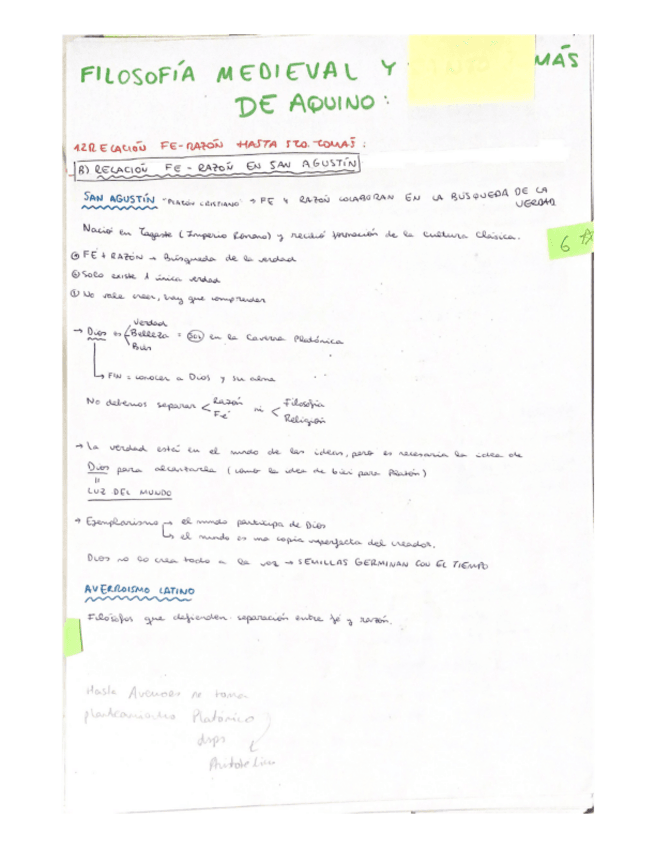 FILOSOFÍA MEDIEVAL Y SANTO TOMÁS
DE AQUINO:
1.2 RELACIÓN FE-RAZÓN HASTA STO. TOMÁS:
B) RELACIÓN FE - RAZÓN EN SAN AGUSTÍN
SAN AGUSTÍN "PLATÓN CRISTIANO" → FE Y RAZÓN COLABORAN EN LA BÚSQUEDA DE LA
VERDAD
Nació en Tagaste (Imperio Romano) y recibió formación de la Cultura Clásica.
6
FE + RAZÓN → Búsqueda de la verdad
Solo existe 1 única verdad
No vale creer, hay que comprender
Verdad
→ Dios = Belleza = SOL en la Caverna Platónica
Bien
→ FIN = conocer a Dios y su alma
No debemos separar < Razón Fe ni < Filosofía Religión
→ La verdad está en el mundo de las ideas, pero es necesaria la idea de
Dios para alcanzarla (como la idea de bien para Platón)
"
LUZ DEL MUNDO
→ Ejemplarismo → el mundo participa de Dios
→ el mundo es una copia imperfecta del creador.
Dios no lo crea todo a la vez → SEMILLAS GERMINAN CON EL TIEMPO
AVERROISMO LATINO
Filósofos que defienden separación entre fe y razón.
Hasta Averroes se toma
planteamientos Platónico
dsps
Aristotelico